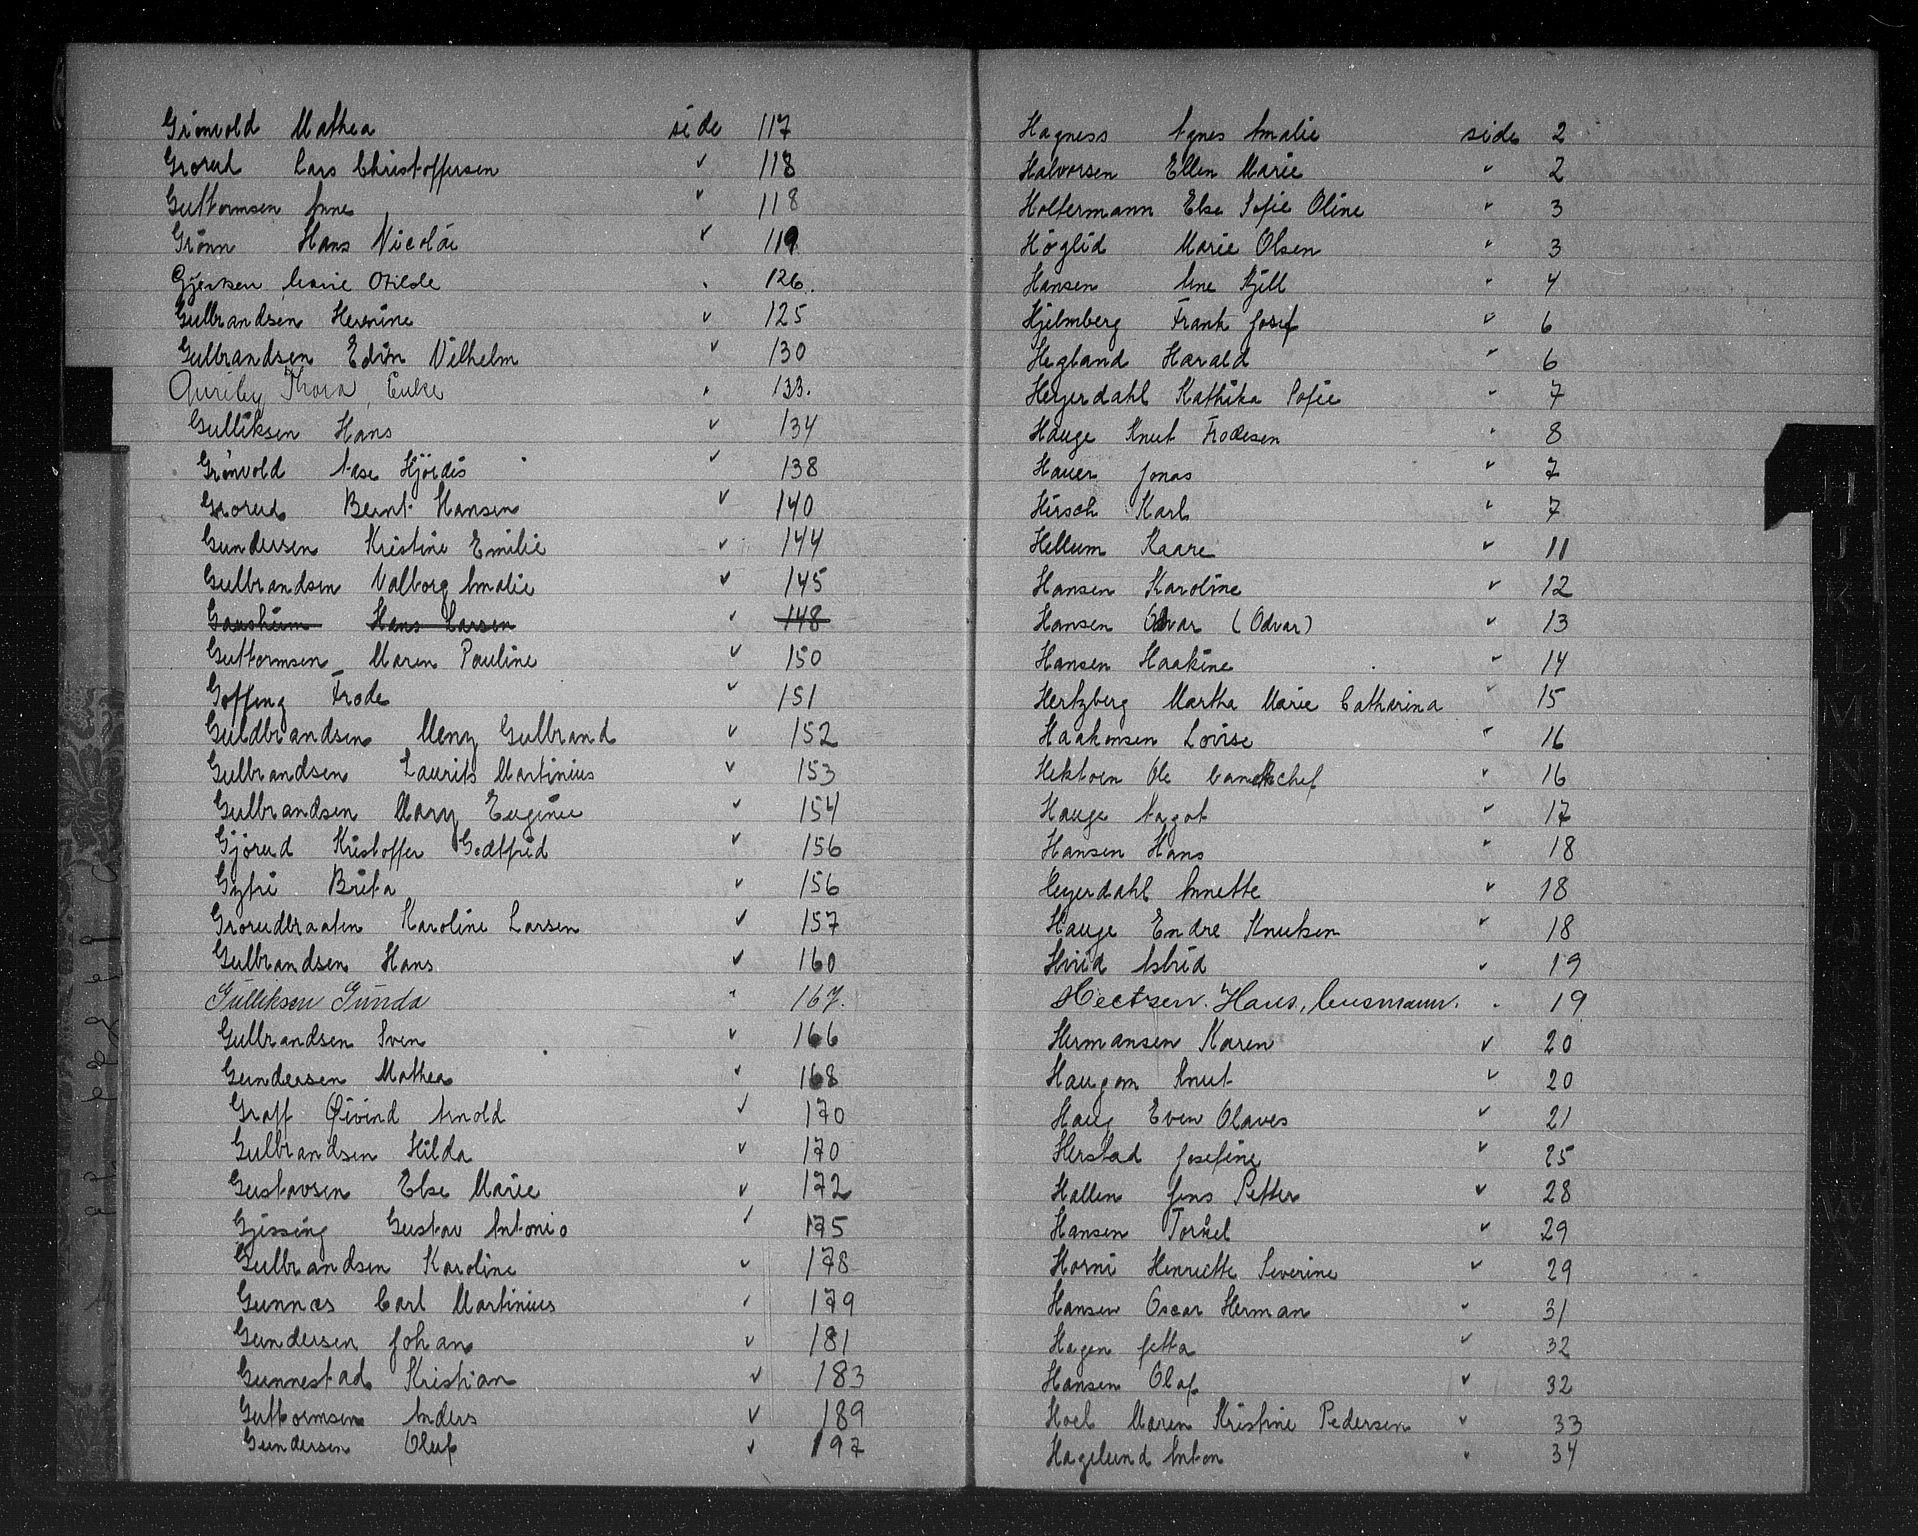 Grönvold Mathea side 117
Grorud Lars Christoffersen " 118
Guttormsen Anne " 118
Grönn Hans Nicolai " 119
Marie Otilde " 126.
Gulbrandsen Hermine " 125
Gulbrandsen Edvin Vilhelm " 130
Thora, Enke " 133.
Gulliksen Hans " 134
Grönvold Aase Hjördis " 138
Grorud Bernt Hansen " 140
Gundersen Kristine Emilie " 144
Gulbrandsen Valborg Amalie " 145
Gaushum Hans Larsen " 148
Guttormsen Maren Pauline " 150
Goffeng Frode " 151
Guldbrandsen Meny Gulbrand " 152
Gulbrandsen Laurits Martinius " 153
Gulbrandsen Mary Eugenie " 154
Gjörud Kristoffer Godtfred " 156
Gytri Brita " 156
Grorudbraaten Karoline Larsen " 157
Gulbrandsen Hans " 160
Gulliksen Gunda " 167.
Gulbrandsen Sven " 166
Gundersen Mathea " 168
Graff Øivind Arnold " 170
Gulbrandsen Hilda " 170
Gustavsen Else Marie " 172
Gjessing Gustav Antonio " 175
Gulbrandsen Karoline " 178
Gunnæs Carl Martinius " 179
Gundersen Johan " 181
Gunnestad Kristian " 183
Guttormsen Anders " 189
Gundersen Oluf " 197
Hagness Agnes Amalie side 2
Halvorsen Ellen Marie " 2
Holtermann Else Sofie Oline " 3
Höglid Marie Olsen " 3
Hansen Arne Kjell " 4
Hjelmberg Frank Josef " 6
Hegland Harald " 6
Heyerdahl Kathika Sofie " 7
Hauge Knut Frodesen " 8
Hauer Jonas " 7
Hirsch Karl " 7
Hellum Kaare " 11
Hansen Karoline " 12
Hansen Odvar (Odvar) " 13
Hansen Haakine " 14
Hertzberg Martha Marie Catharina " 15
Haakonsen Lovise " 16
Hektoen Ole " 16
Hauge Aagot " 17
Hansen Hans " 18
Heyerdahl Annette " 18
Hauge Endre Knutsen " 18
Hvid Astrid " 19
Hans, " 19
Hermansen Karen " 20
Haugom Knut " 20
Haug Even Olaves " 21
Herstad Josefine " 25
Hallen Jens Petter " 28
Hansen Torkel " 29
Horni Henriette Severine " 29
Hansen Oscar Herman " 31
Hagen Jetta " 32
Hansen Olaf " 32
Hoel Maren Kristine Pedersen " 33
Hagelund Anton " 34
H
J
K
L
M
N
O
P